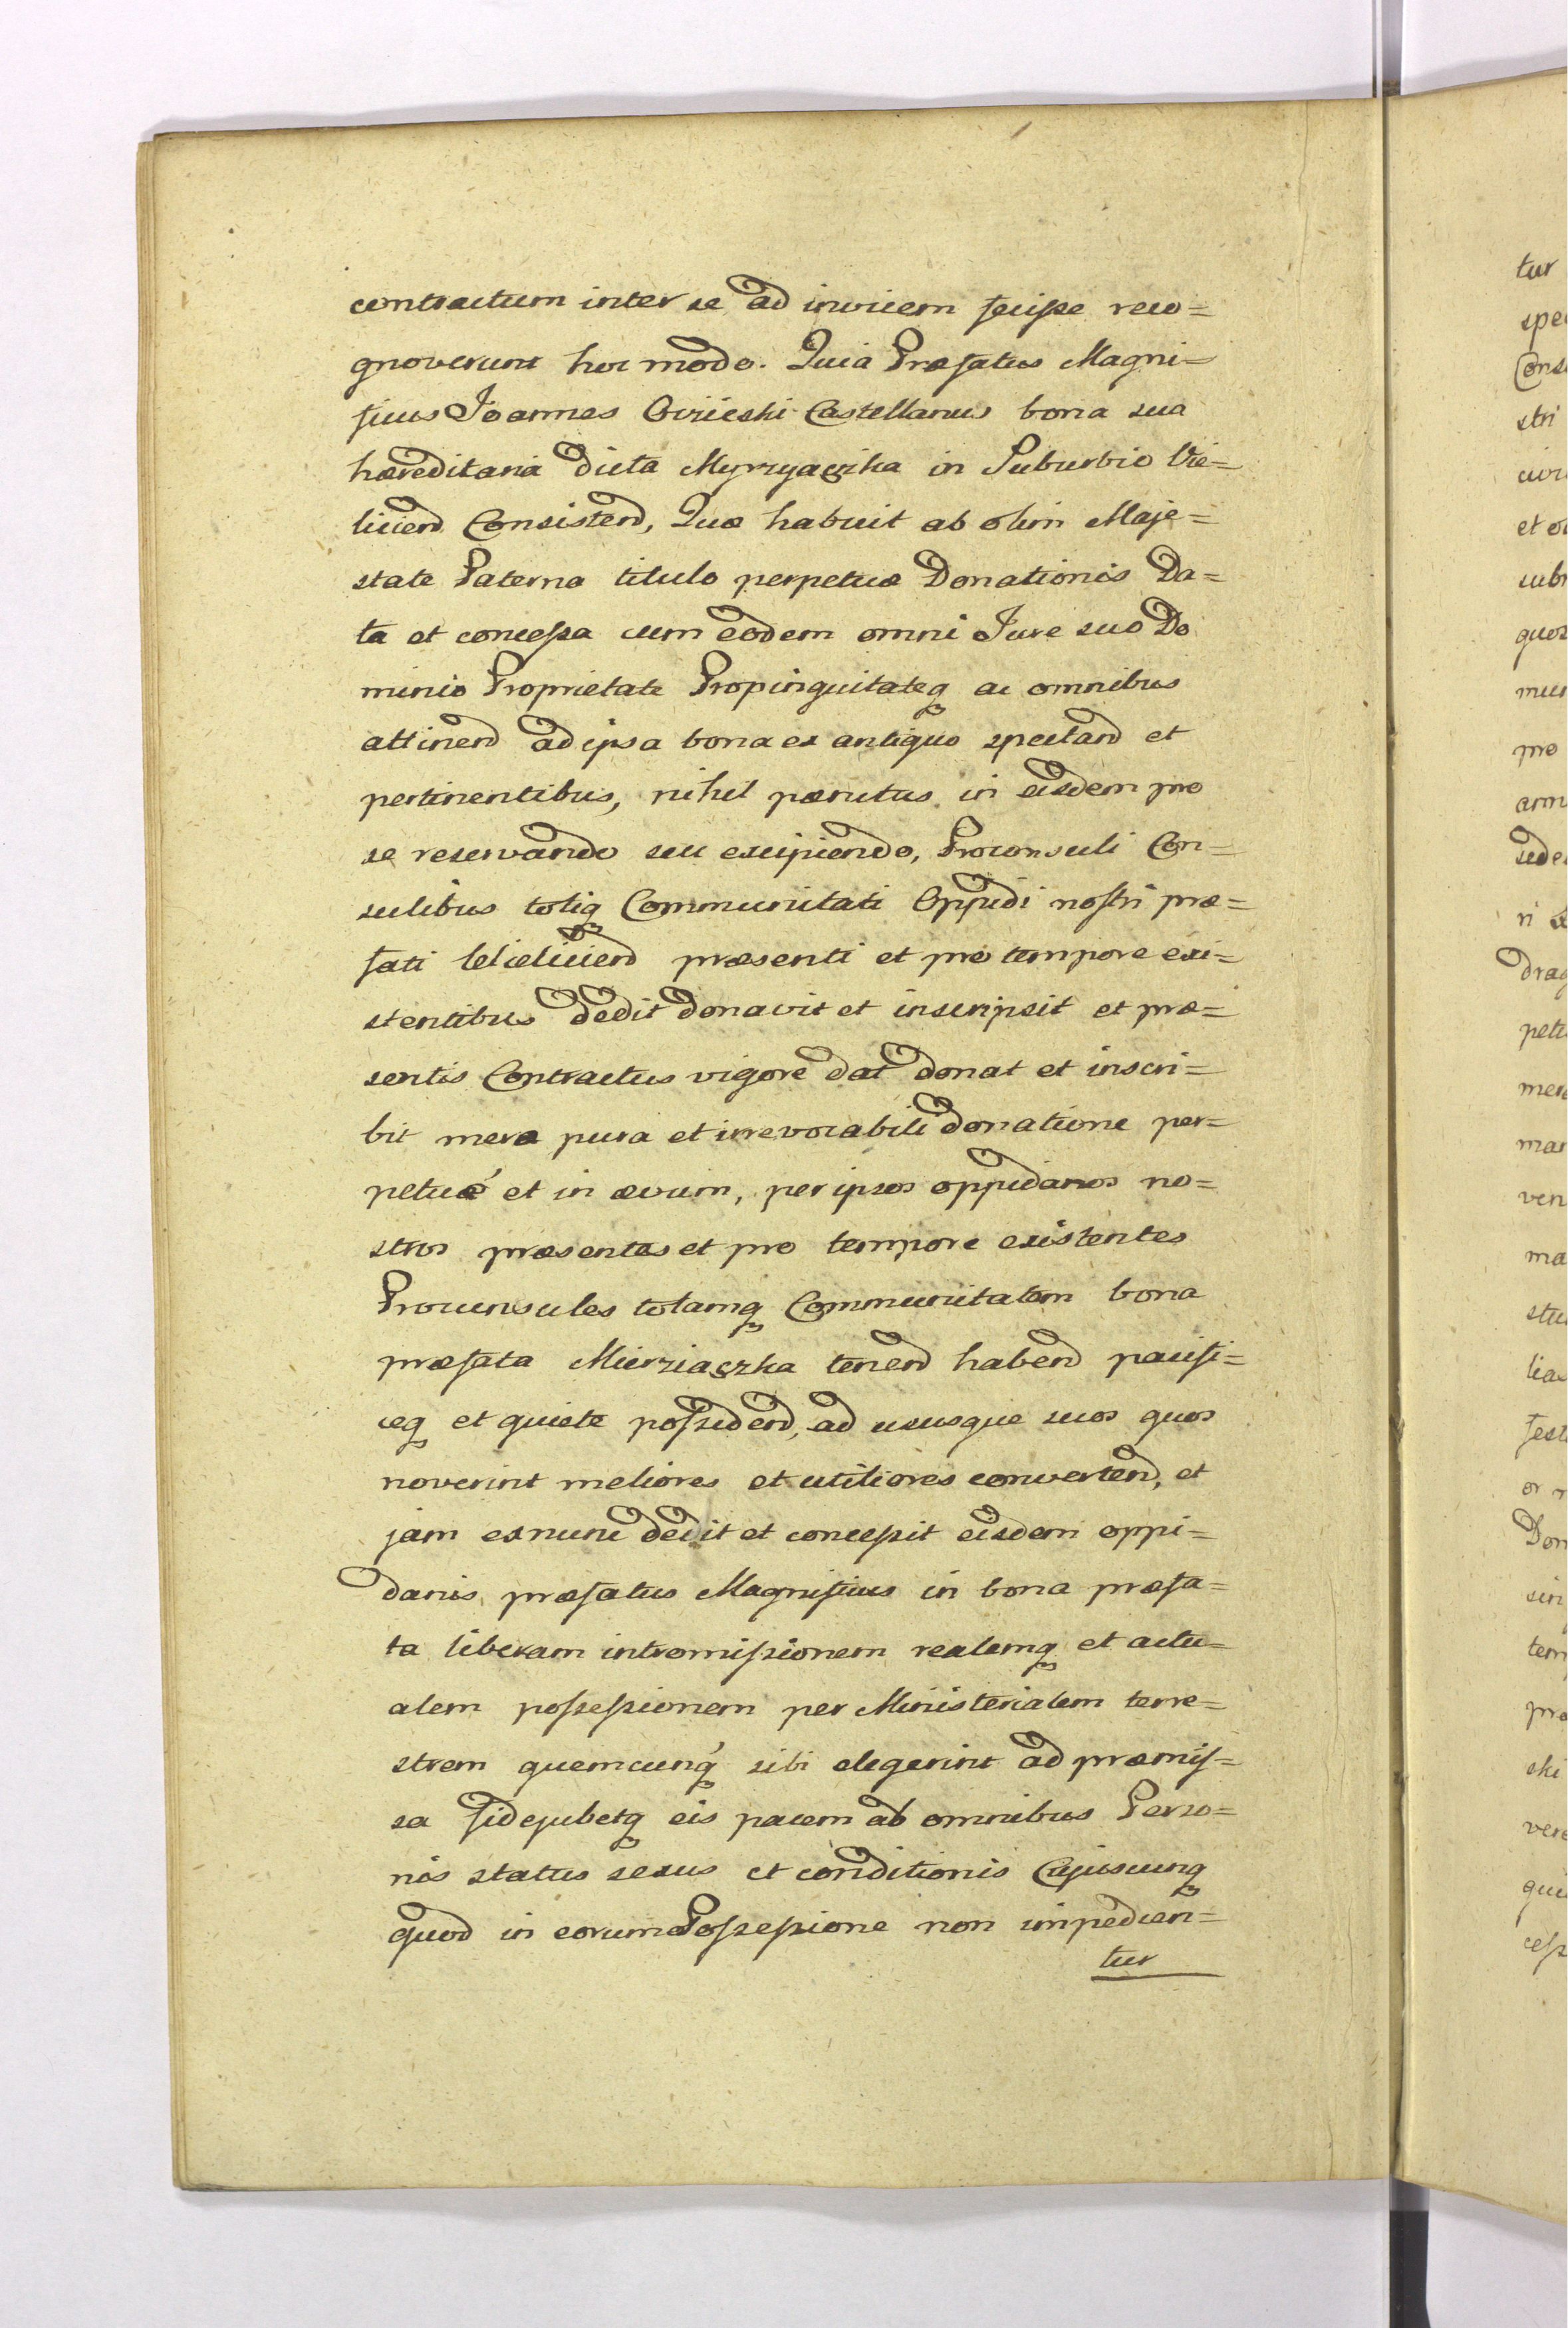 contractum inter se ad invicem fecisse reco=
gnoverunt hoc modo. Quia Præfatus Magni=
ficus Joannes Ovzieski Castellanus bona sua
hæreditaria dicta Myrzyączka in Suburbio Vie=
liciend Consistend, Quæ habuit ab olim Maje=
state Paterna titulo perpetuæ Donationis Da=
ta et concessa cum eodem omni Jure suo Do
minio Proprietate Propinquitateq ac omnibus
attinend ad ipsa bona ex antiquo spectand et
pertinentibus, nihil pænitus in eisdem pro
se reservando seu excipiendo, Proconsuli Con=
sulibus totiq Communitati Oppidi nostri præ=
fati Wieliciend præsenti et pro tempore exi=
stentibus dedit donavit et inscripsit et præ=
sentis Contractus vigore dat donat et inscri=
bit mera pura et irrevocabili donatione per=
petué et in ævum, per ipsos oppidanos no=
stros præsentes et pro tempore existentes
Procunsules totamq Communitatem bona
præfata Mierziączka tenend habend pacifi=
ceq et quiete possidend, ad ususque suos quos
noverint meliores et utiliores convertend, et
jam exnunc dedit et concessit eisdem oppi=
danis præfatus Magnificus in bona præfa=
ta liberam intromissionem realemq et actu=
alem possessionem per Ministerialem terre=
strem quemcunq sibi elegerint ad præmis=
sa fidejubetq eis pacem ab omnibus Perso=
nis status sexus et conditionis Cujuscunq
quod in eorum Possessione non impedien=
tur